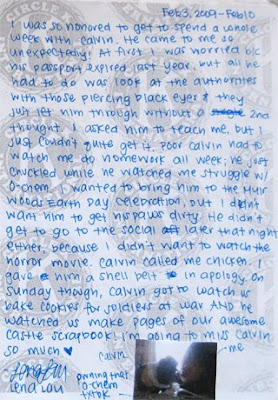 Feb 3, 2009 - Feb 10
I was so honored to get to spend a whole
week with Calvin. He came to me so
unexpectedly! At first I was worried b/c
his passport expired last year, but all he
had to do was look at the authorities
with those piercing black eyes & they
just let him through without a 2nd
thought. I asked him to teach me, but I
just couldn't quite get it. Poor Calvin had to
watch me do homework all week; he just
chuckled while he watched me struggle w/
o-chem. I wanted to bring him to the Muir
Woods Earth Day celebration, but I didn't
want him to get his paws dirty. He didn't
get to go to the social later that night
either, because I didn't want to watch the
horror movie. Calvin called me chicken. I
gave him a shell belt to in apology. On
Sunday though, Calvin got to watch us
bake cookies for soldiers at war AND he
watched us make pages of our awesome
castle scrapbook! I'm going to miss Calvin
so much ♥
Calvin
me
Lena Lau
owning that
o-chem
txtbk